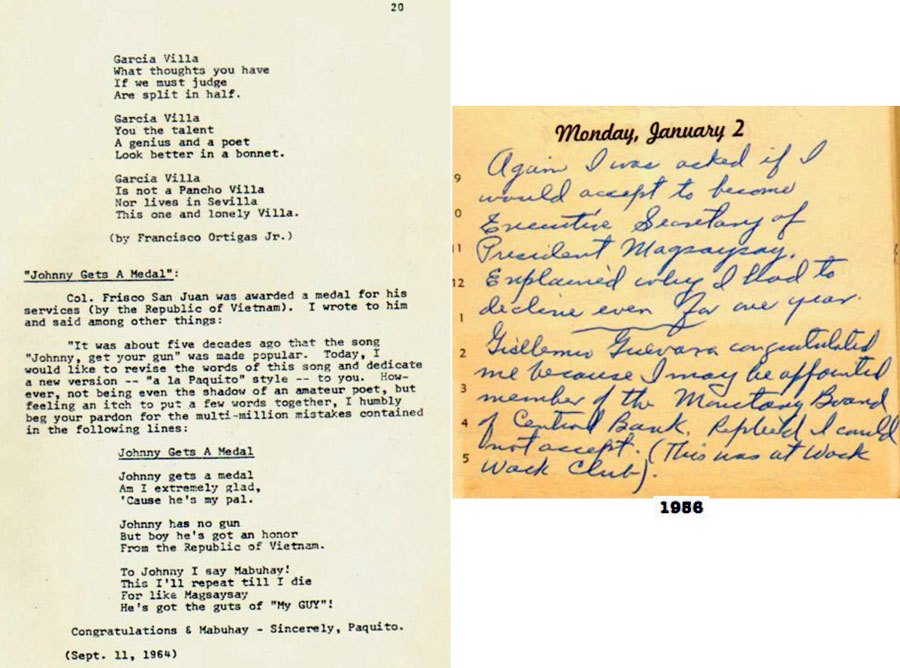 20
Garcia Villa
What thoughts you have
If we must judge
Are split in half.
Garcia Villa
You the talent
A genius and a poet
Look better in a bonnet.
Garcia Villa
Is not a Pancho Villa
Nor lives in Sevilla
This one and lonely Villa.
(by Francisco Ortigas Jr.)
"Johnny Gets A Medal":
Col. Frisco San Juan was awarded a medal for his
services (by the Republic of Vietnam). I wrote to him
and said among other things:
"It was about five decades ago that the song
"Johnny, get your gun" was made popular. Today, I
would like to revise the words of this song and dedicate
a new version -- "a la Paquito" style -- to you. How-
ever, not being even the shadow of an amateur poet, but
feeling an itch to put a few words together, I humbly
beg your pardon for the multi-million mistakes contained
in the following lines:
Johnny Gets A Medal
Johnny gets a medal
Am I extremely glad,
'Cause he's my pal.
Johnny has no gun
But boy he's got an honor
From the Republic of Vietnam.
To Johnny I say Mabuhay!
This I'll repeat till I die
For like Magsaysay
He's got the guts of "My GUY"!
Congratulations & Mabuhay - Sincerely, Paquito.
(Sept. 11, 1964)
Monday, January 2
9
Again I was asked if I
would accept to become
0
Executive Secretary of
11
President Magsaysay.
12
Explained why I had to
1
decline even for one year.
2
Guevara congratulated
me because I may be appointed
3
member of the Monetary Board
4
of Central Bank. Replied I could
5
not accept. (This was at Wack
Wack Club).
1956